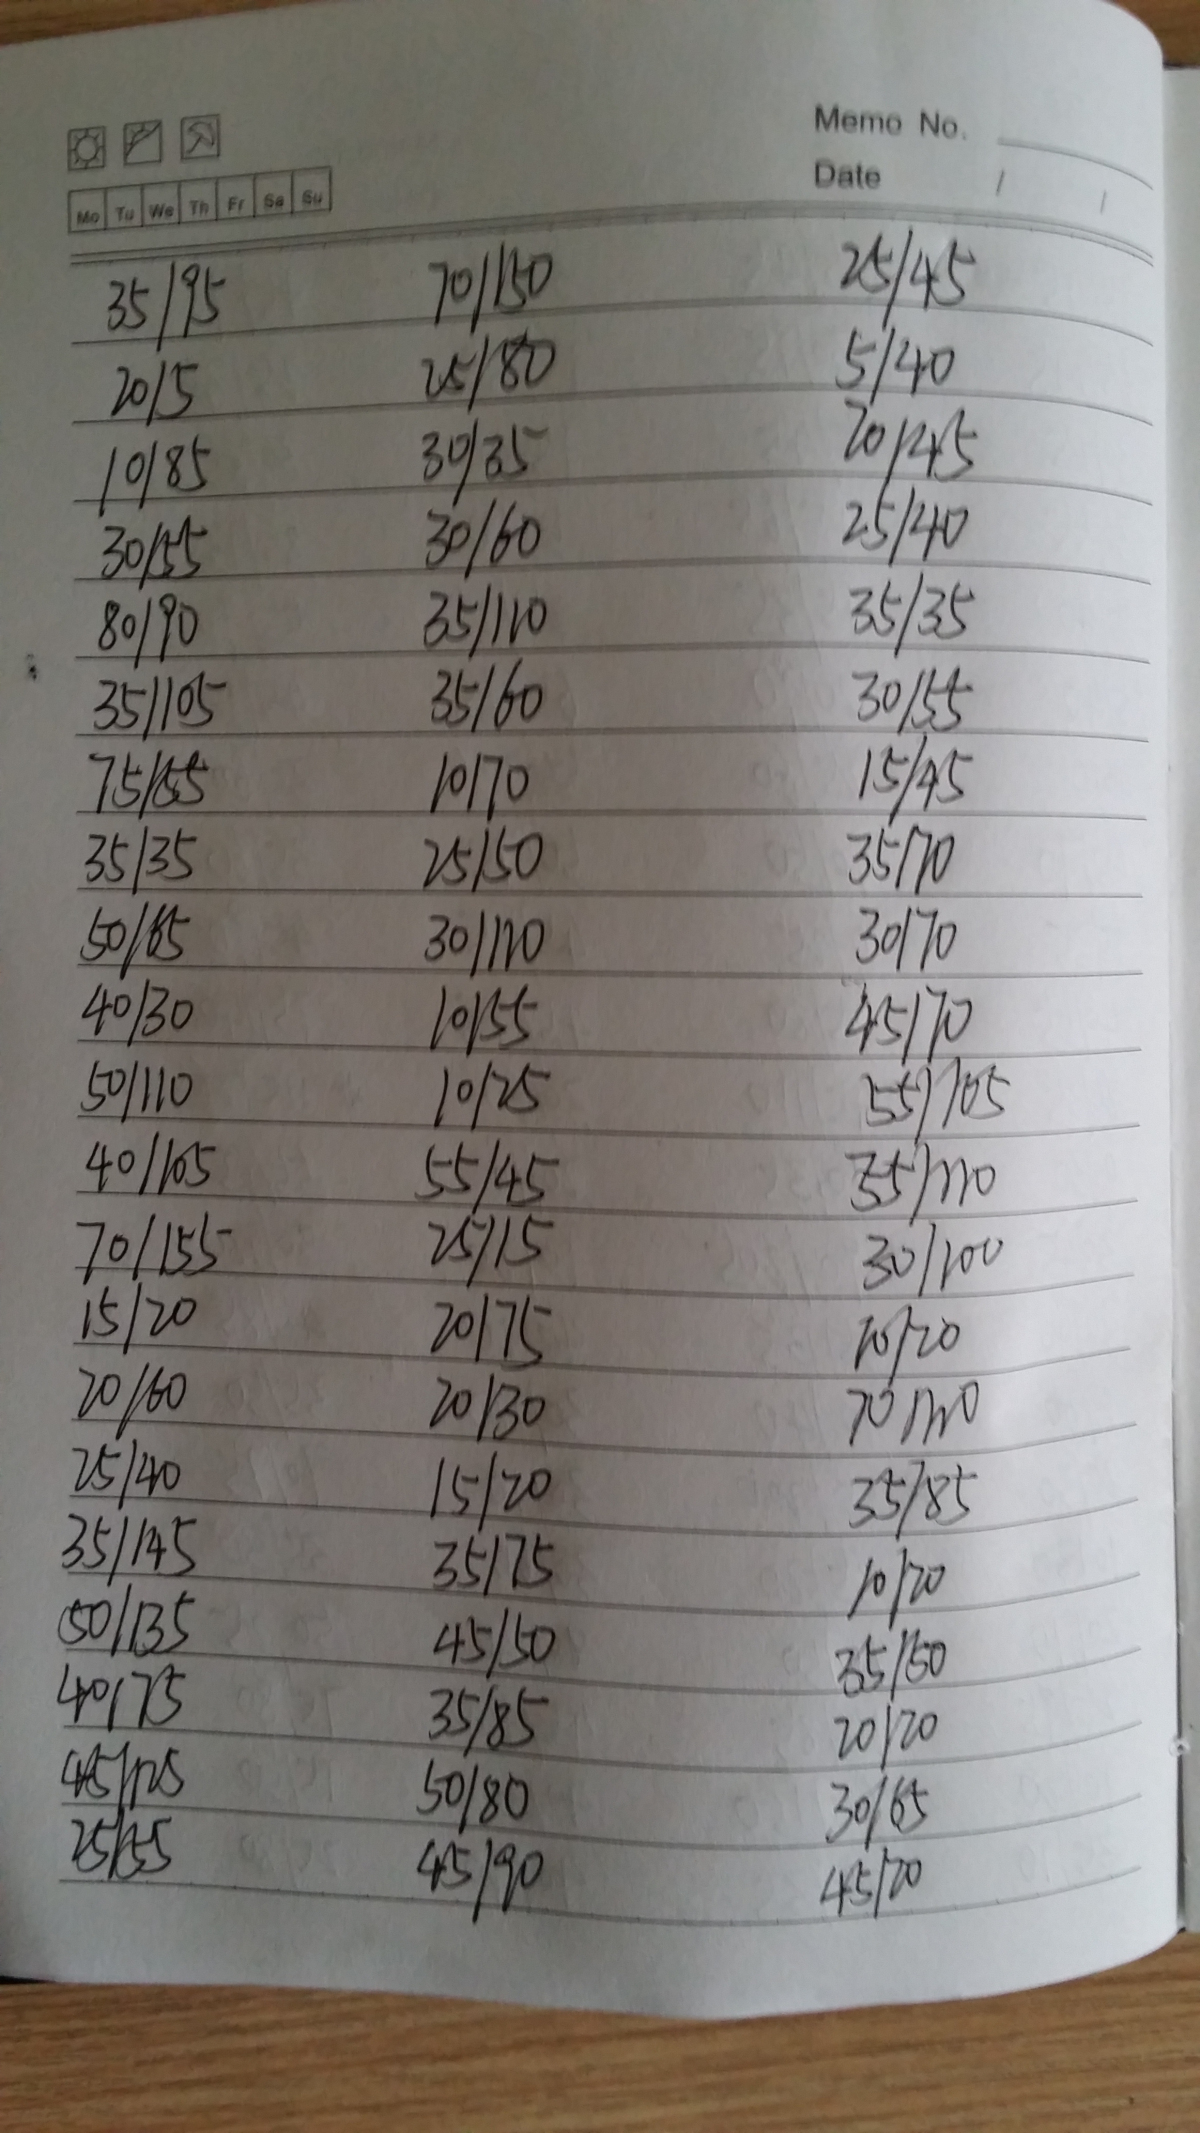 Memo No.
Date / /
Mo Tu We Th Fr Sa Su
35/95 70/150 25/45
20/5 25/80 5/40
10/85 30/35 20/45
30/55 30/60 25/40
80/90 35/110 35/35
35/105 35/60 30/55
75/155 10/70 15/45
35/35 25/50 35/70
50/65 30/110 30/70
40/30 10/55 45/70
50/110 10/25 55/105
40/105 55/45 35/110
70/155 25/15 30/100
15/20 20/75 20/20
20/60 20/30 70/110
25/40 15/20 35/85
35/145 35/75 10/20
50/135 45/50 35/50
40/75 35/85 20/20
45/125 50/80 30/65
25/55 45/90 45/20